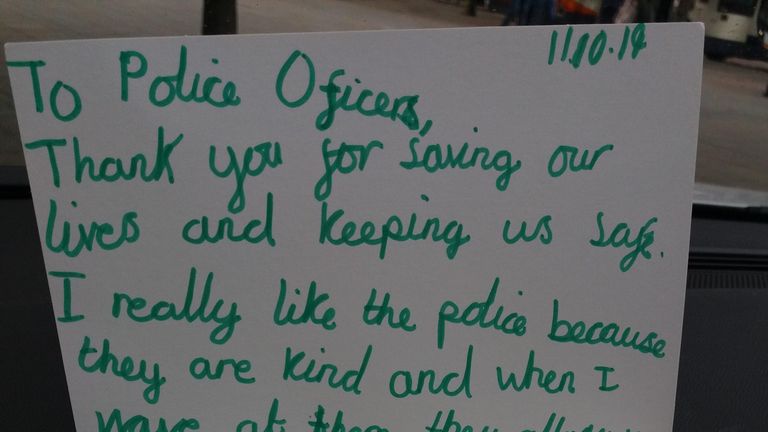 11.10.19
To Police Oficers,
Thank you for saving our
lives and keeping us safe.
I really like the police because
they are kind and when I
wave at them they